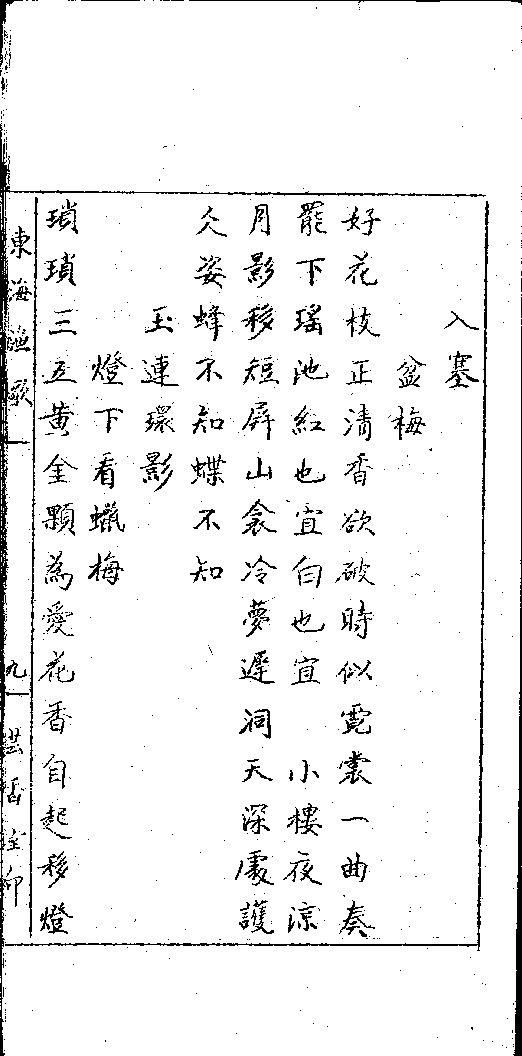 入塞
盆梅
好花枝正清香欲破時似霓裳一曲奏
罷下瑤池紅也宜白也宜　小樓夜涼
月影移短屏山衾冷夢遲洞天深處護
仌姿蜂不知蝶不知
玉連環影
燈下看蠟梅
瑣瑣三五黃金顆為愛花香自起移燈
東海漁歌一
九